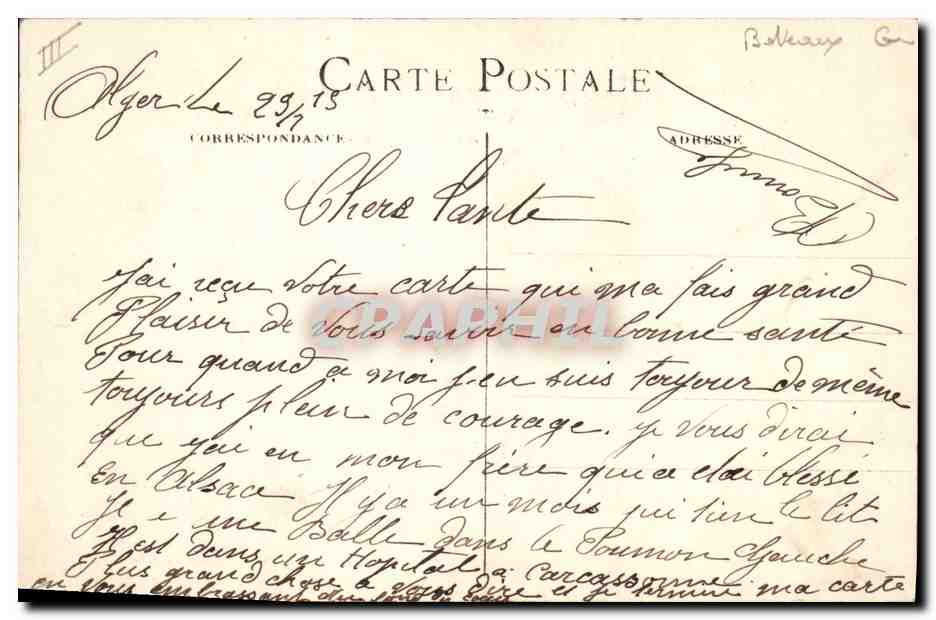 III
CARTE POSTALE
Alger Le 29/7 15
CORRESPONDANCE
ADRESSE
Chere Tante
J'ai reçu votre carte qui ma fais grand
Plaisir de Vous savoir en bonne santé
Pour quand a moi j-en suis toujour de même
toujours plein de courage. je Vous dirai
que j'ai en mon frère qui a étai blessé
En Alsace Il y a un mois qui tien le lit
Il e une Balle dans le Poumon Gauche
Il est dans un Hopital a Carcassonne
Plus grand chose a Vous dire et je termine ma carte
en Vous embrassant du
CPAPHIL